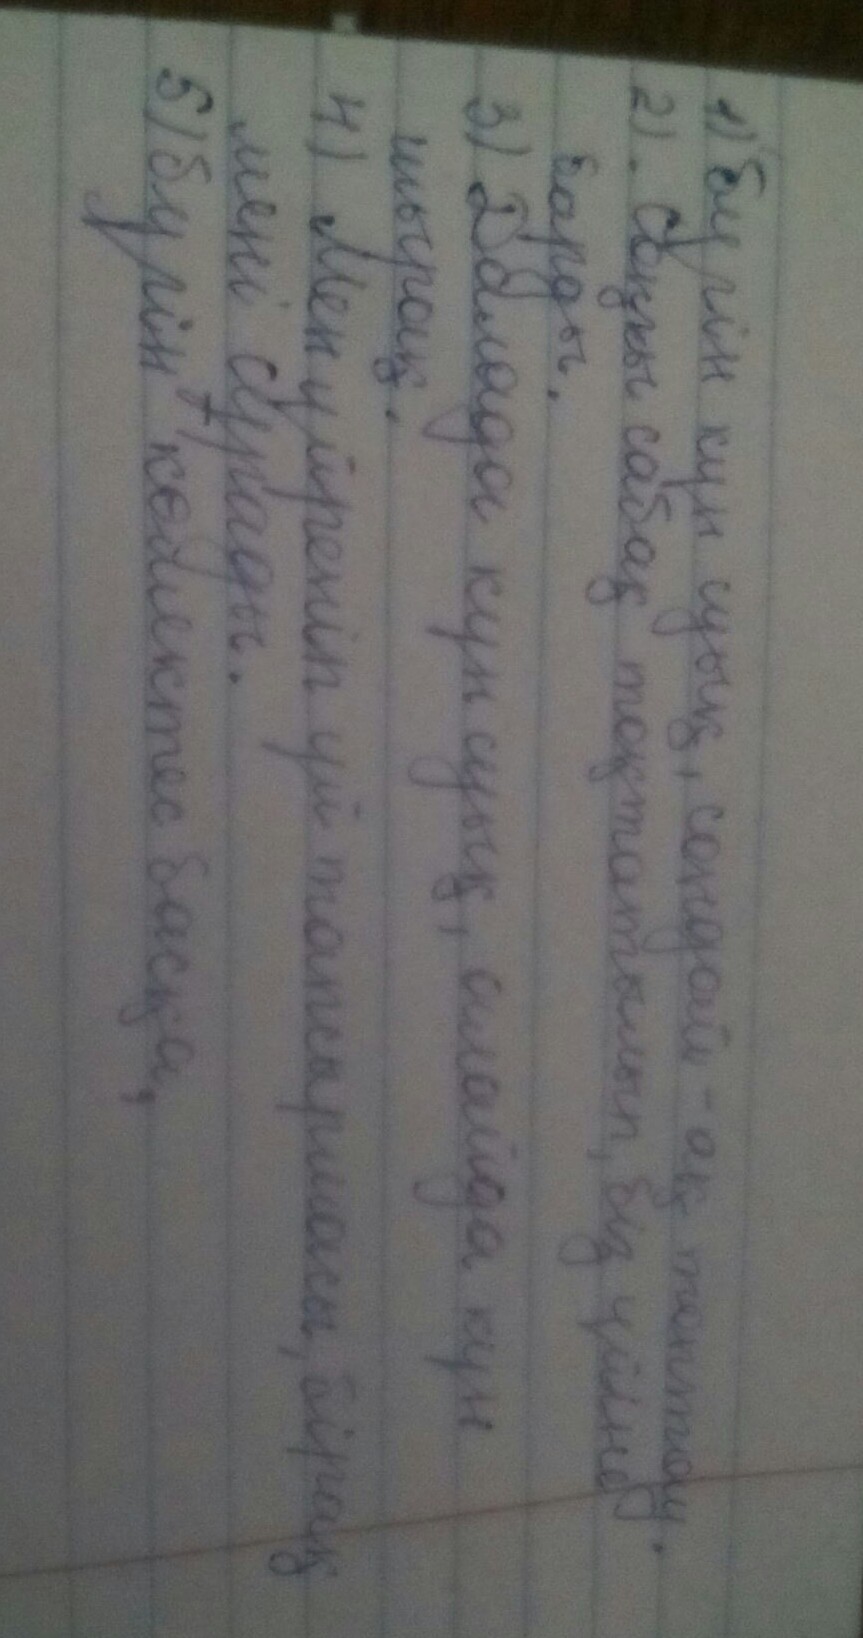 1) бүгін күн суық, сондай-ақ тоңтау.
2). Соңғы сабақ тоқтатылып, біз үйіне
барды.
3) Далада күн суық, алайда күн
шығрақ.
4) Мен үйреніп үй тапсырмасы, бірақ
мені сұрады.
5) бүгін көйлектес басқа,